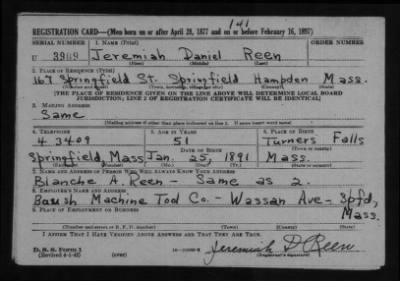 141
REGISTRATION CARD—(Men born on or after April 28, 1877 and on or before February 16, 1897)
SERIAL NUMBER 1. NAME (Print) ORDER NUMBER
U 3909 Jeremiah Daniel Reen
(First) (Middle) (Last)
2. PLACE OF RESIDENCE (Print)
167 Springfield St. Springfield Hampden Mass.
(Number and street) (Town, township, village, or city) (County) (State)
[THE PLACE OF RESIDENCE GIVEN ON THE LINE ABOVE WILL DETERMINE LOCAL BOARD
JURISDICTION; LINE 2 OF REGISTRATION CERTIFICATE WILL BE IDENTICAL]
3. MAILING ADDRESS
Same
[Mailing address if other than place indicated on line 2. If same insert word same]
4. TELEPHONE 5. AGE IN YEARS 6. PLACE OF BIRTH
4 3409 51 Turners Falls
DATE OF BIRTH (Town or county)
Springfield Mass Jan. 25, 1891 Mass.
(Exchange) (Number) (Mo.) (Day) (Yr.) (State or country)
7. NAME AND ADDRESS OF PERSON WHO WILL ALWAYS KNOW YOUR ADDRESS
Blanche A. Reen - Same as 2.
8. EMPLOYER'S NAME AND ADDRESS
Baush Machine Tool Co - Wassan Ave - Spfd,
Mass.
9. PLACE OF EMPLOYMENT OR BUSINESS
(Number and street or R. F. D. number) (Town) (County) (State)
I AFFIRM THAT I HAVE VERIFIED ABOVE ANSWERS AND THAT THEY ARE TRUE.
D. S. S. Form 1
(Revised 4-1-42) (over) Jeremiah D Reen
(Registrant's signature)